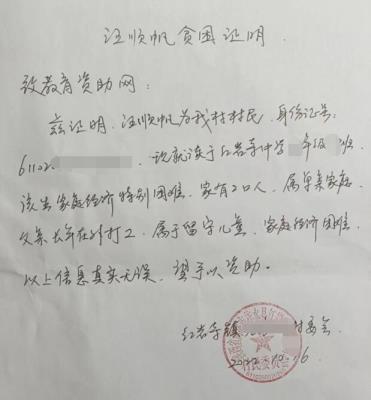 汪顺帆贫困证明
致教育资助网:
兹证明,汪顺帆为我村村民,身份证号:
61102 现就读于红岩寺中学 年级 班
该生家庭经济特别困难,家有2口人,属单亲家庭,
父亲长年在外打工,属于留守儿童,家庭经济困难,
以上信息真实无误,望予以资助。
红岩寺镇 村委会
村民委员会